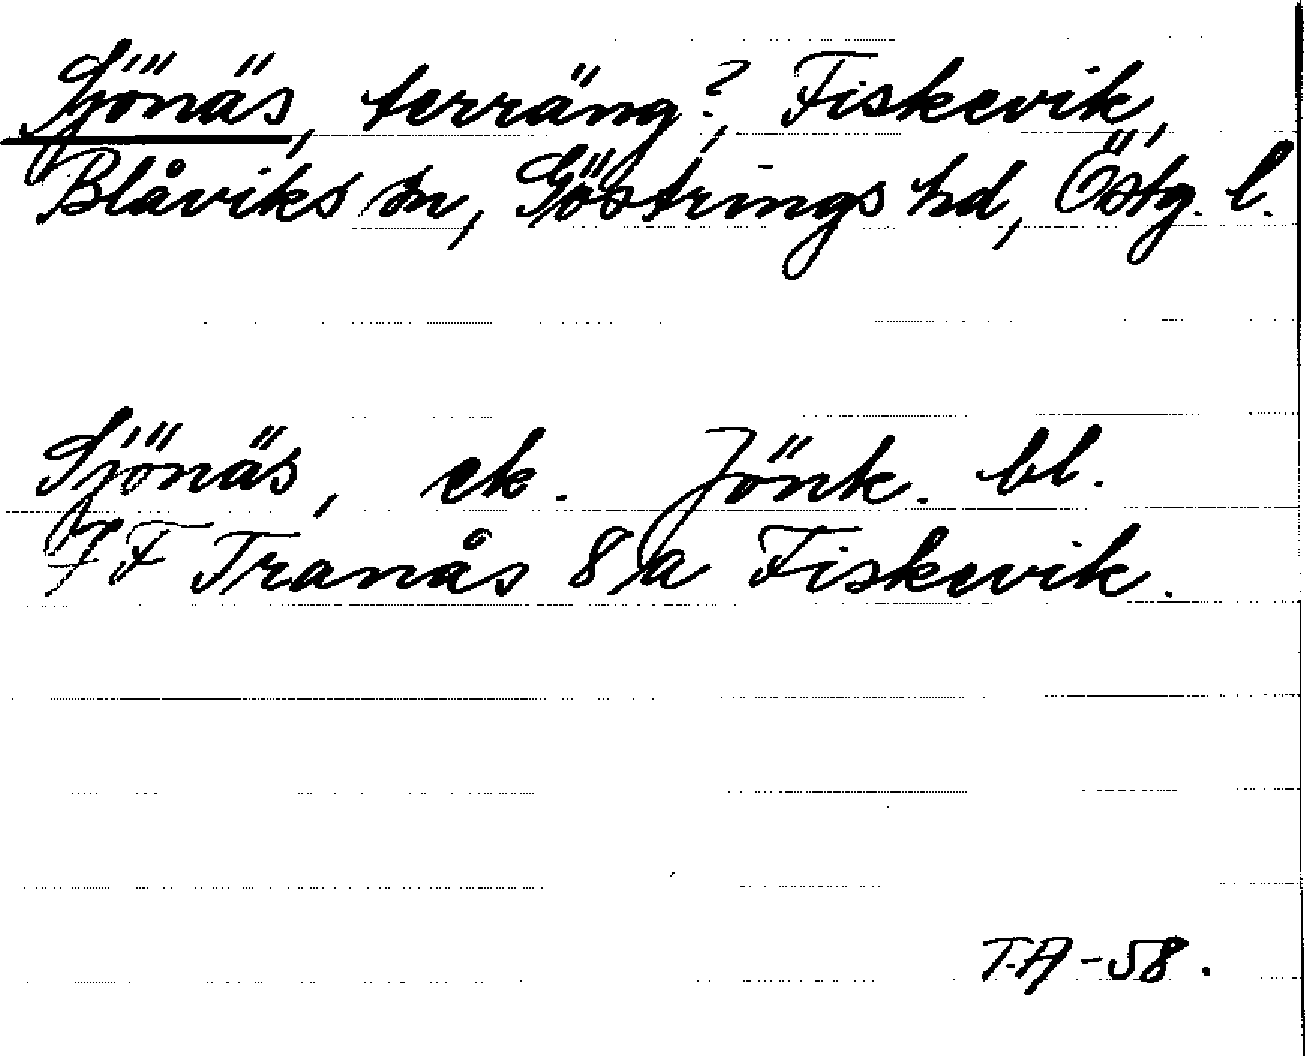 Sjönäs, terräng?, Fiskevik,
Blåviks sn, Göstrings hd, Östg. l.
Sjönäs, ek. Jönk. bl.
JF Tranås 8/a Fiskevik.
T.A-58.